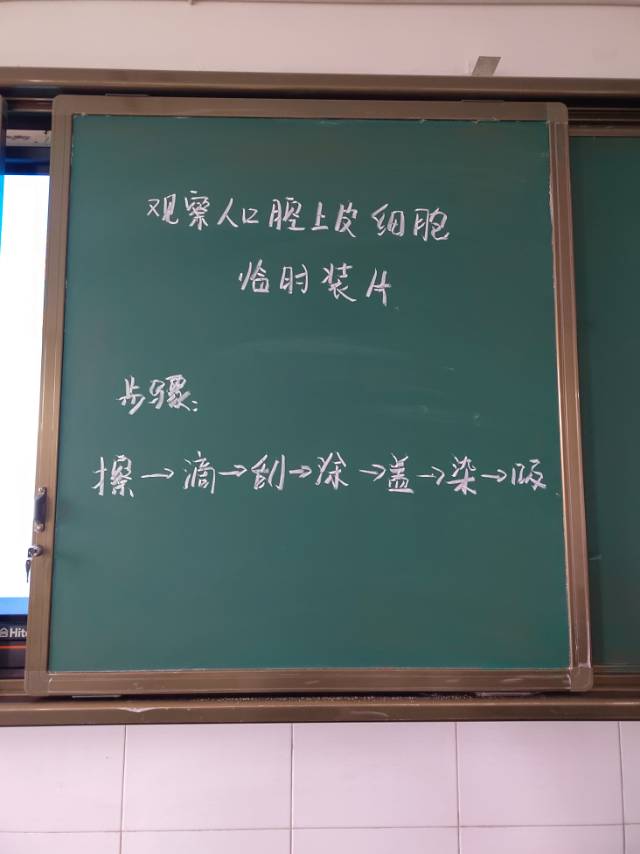 观察人口腔上皮细胞
临时装片
步骤:
擦→滴→刮→涂→盖→染→吸
Hite